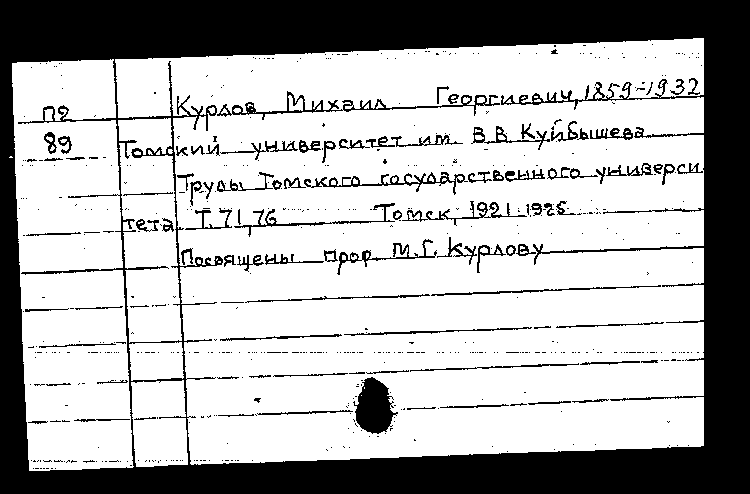 П2 Курлов, Михаил Георгиевич, 1859-1932
89 Томский университет им. В.В. Куйбышева
Труды Томского государственного универси
тета Т. 71, 76 Томск, 1921-1925
Посвящены проф. М.Г. Курлову